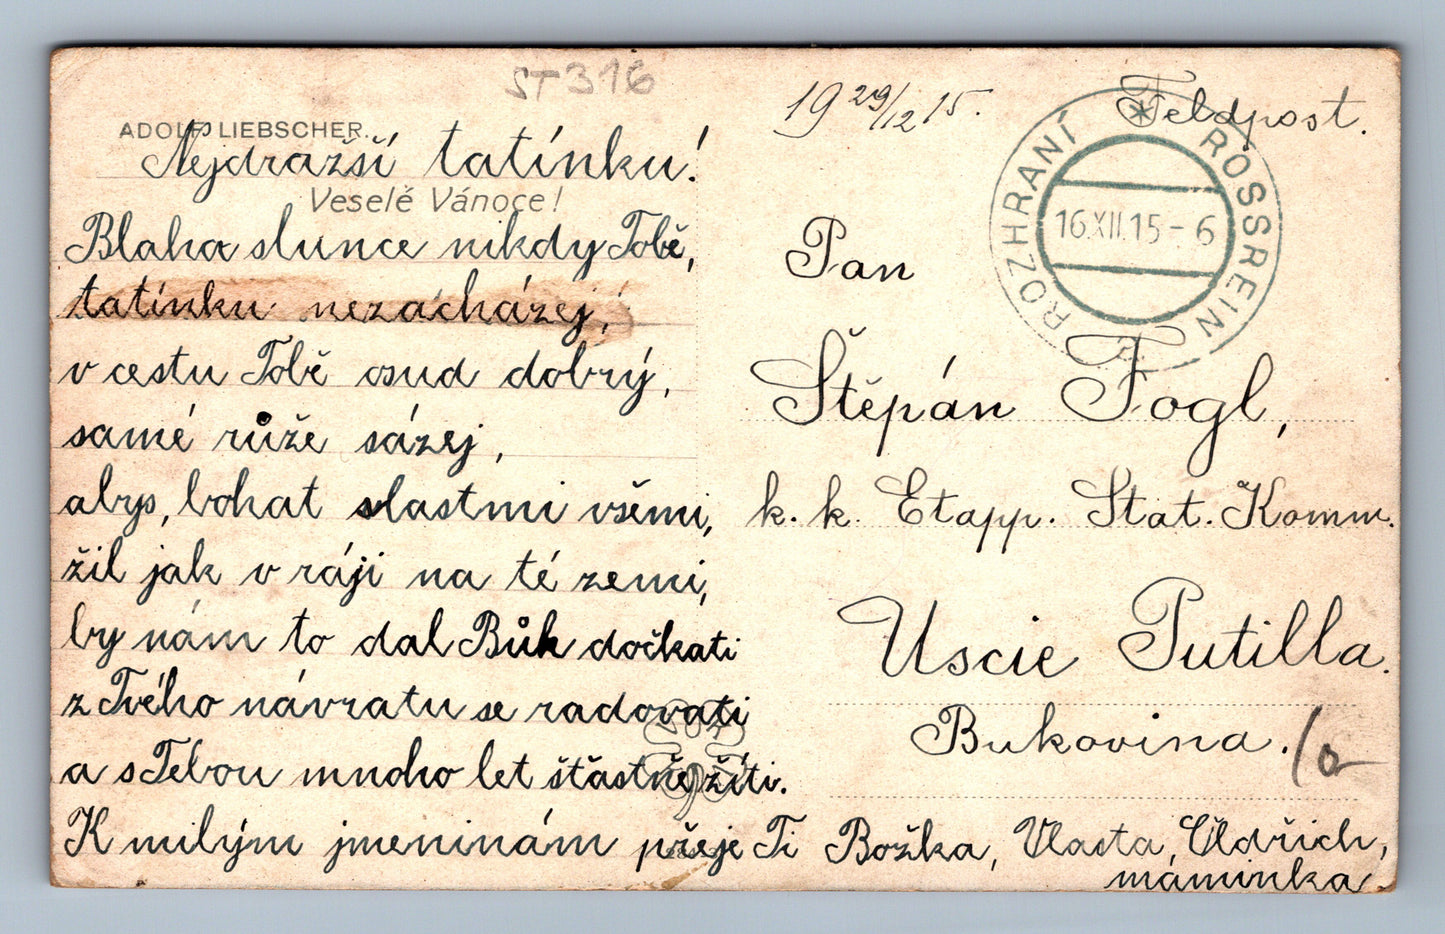 ST 316
ADOLF LIEBSCHER.
Nejdražší tatínku!
Veselé Vánoce!
Blaha slunce nikdy Tobě,
tatínku nezacházej,
v cestu Tobě osud dobrý,
samé růže sázej,
abys, bohat vlastmi všemi,
žil jak v ráji na té zemi,
by nám to dal Bůh dočkati
z Tvého návratu se radovati
a s Tebou mnoho let šťastně žíti.
K milým jmeninám přeje Ti Božka, Vlasta, Oldřich,
maminka.
19 29/12 15.
Feldpost.
ROZHRANÍ * ROSSREIN
16.XII.15-6
Pan
Štěpán Fogl,
k. k. Etapp. Stat. Komm.
Uscie Putilla.
Bukovina.